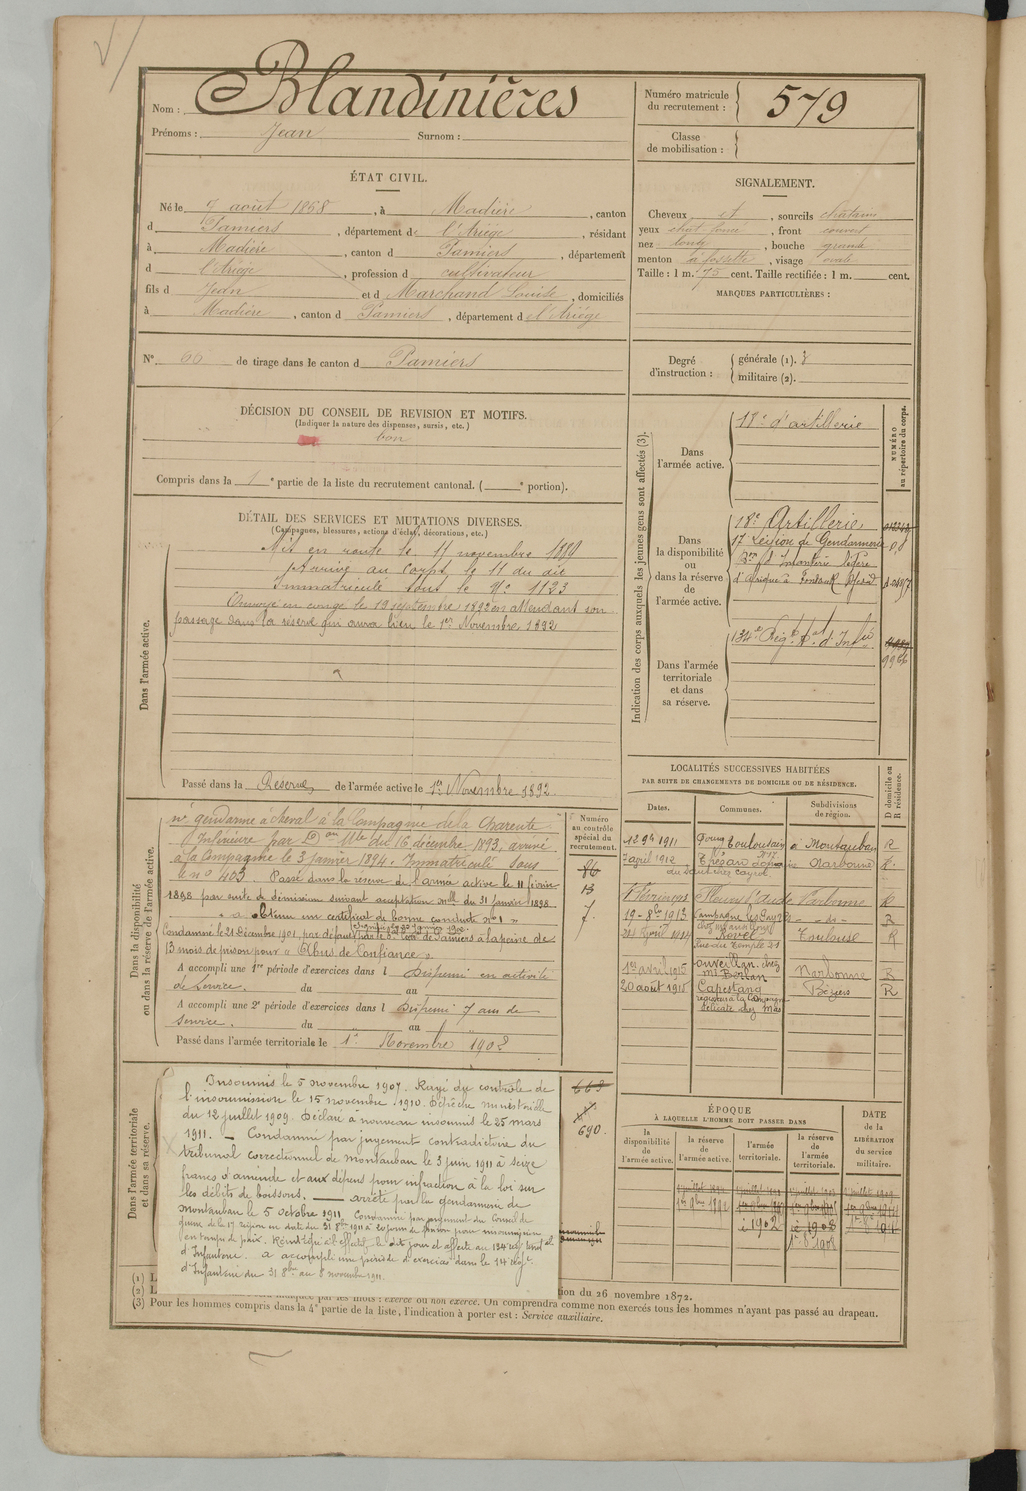 Nom : Blandinières
Prénoms : Jean Surnom :
Numéro matricule du recrutement : 579
Classe de mobilisation :
ÉTAT CIVIL.
Né le 7 août 1868, à Madière, canton
d Pamiers, département de l'Ariège, résidant
à Madière, canton d Pamiers, département
d l'Ariège, profession d cultivateur
fils d Jean et d Marchand Louise, domiciliés
à Madière, canton d Pamiers, département d el'Ariège
N° 66 de tirage dans le canton d Pamiers
SIGNALEMENT.
Cheveux et, sourcils châtains
yeux chât. foncé, front couvert
nez , bouche grande
menton à fossette, visage ovale
Taille : 1 m. 75 cent. Taille rectifiée : 1 m. cent.
MARQUES PARTICULIÈRES :
Degré d'instruction : générale (1). 3
militaire (2).
DÉCISION DU CONSEIL DE REVISION ET MOTIFS.
(Indiquer la nature des dispenses, sursis, etc.)
bon
Compris dans la 1e partie de la liste du recrutement cantonal. ( e portion).
DÉTAIL DES SERVICES ET MUTATIONS DIVERSES.
(Campagnes, blessures, actions d'éclat, décorations, etc.)
Dans l'armée active.
Mis en route le 11 novembre 1889
Arrivé au corps le 11 du dit
Immatriculé sous le N° 1123
Envoyé en congé le 19 septembre 1892 en attendant son
passage dans la réserve qui aura lieu le 1er Novembre 1892
Passé dans la Réserve de l'armée active le 1er Novembre 1892
Indication des corps auxquels les jeunes gens sont affectés (3).
NUMÉRO au répertoire du corps.
Dans l'armée active.
18e d'artillerie
Dans la disponibilité ou dans la réserve de l'armée active.
18e Artillerie
17 Légion de Gendarmerie
3e Bon d'Infanterie légère
d'Afrique à
Dans l'armée territoriale et dans sa réserve.
134e Régt tal d'Infie
Dans la disponibilité ou dans la réserve de l'armée active.
Numéro au contrôle spécial du recrutement.
86
13
7
né gendarme à cheval à la Compagnie de la Charente
Inférieure par Don Mlle du 16 décembre 1893, arrivé
à la Compagnie le 3 janvier 1894. Immatriculé sous
le n° 403. Passé dans la réserve de l'armée active le 11 février
1898 par suite de démission suivant acceptation mlle du 31 janvier 1898.
a obtenu un certificat de bonne conduite n° 1
Condamné le 21 Décembre 1901 par défaut par le Tbal Corr. de Pamiers à la peine de
13 mois de prison pour « Abus de Confiance ».
A accompli une 1re période d'exercices dans l Dispensé en activité
de service. du au
A accompli une 2e période d'exercices dans l Dispensé 7 ans de
service. du au
Passé dans l'armée territoriale le 1er Novembre 1902
LOCALITÉS SUCCESSIVES HABITÉES
PAR SUITE DE CHANGEMENTS DE DOMICILE OU DE RÉSIDENCE.
Dates. Communes. Subdivisions de région. D domicile ou R résidence.
1 2 9bre 1911 Toulousain Montauban R
7 avril 1912 Narbonne R
Fleury d'Aude Narbonne R
19 - 8bre 1913 -do- R
24 avril 1914 Revel Toulouse R
Rue du Temple 21
1er avril 1915 Ouveillan chez Mr Narbonne R
20 août 1915 Capestang Béziers R
Dans l'armée territoriale et dans sa réserve.
663
690
Insoumis le 5 novembre 1907. Rayé du contrôle de
l'insoumission le 15 novembre 1910. Dépêche ministérielle
du 12 juillet 1909. Déclaré à nouveau insoumis le 25 mars
1911. — Condamné par jugement contradictoire du
tribunal correctionnel de Montauban le 3 juin 1911 à seize
francs d'amende et aux dépens pour infraction à la loi sur
les débits de boissons. — arrêté par la gendarmerie de
Montauban le 5 octobre 1911. Condamné par jugement du Conseil de
guerre de la 17 région en date du 31 8bre 1911 à 20 jours de prison pour insoumission
en temps de paix. Réintégré à l'effectif le dit jour et affecté au 134 rég. territ al
d'Infanterie. a accompli une période d'exercices dans le 14 régt
d'Infanterie du 31 8bre au 8 novembre 1911.
ÉPOQUE
À LAQUELLE L'HOMME DOIT PASSER DANS
la disponibilité de l'armée active. la réserve de l'armée active. l'armée territoriale. la réserve de l'armée territoriale.
DATE de la LIBÉRATION du service militaire.
1er 9bre 1892
1902
1908
(1) L
(2) L par les mots : exercé ou non exercé. On comprendra comme non exercés tous les hommes n'ayant pas passé au drapeau.
ion du 26 novembre 1872.
(3) Pour les hommes compris dans la 4e partie de la liste, l'indication à porter est : Service auxiliaire.